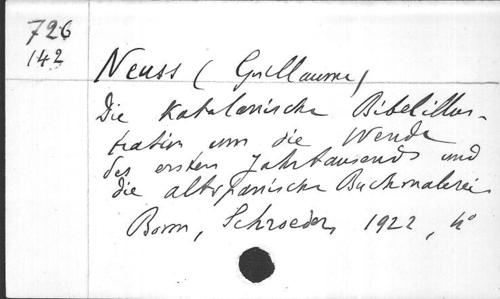 726
142
Neuss (Guillaume)
Die katalanische Bibelillus-
tration um die Wende
des ersten Jahrtausends und
die altspanische Buchmalerei
Bonn, Schroeder, 1922, 4°